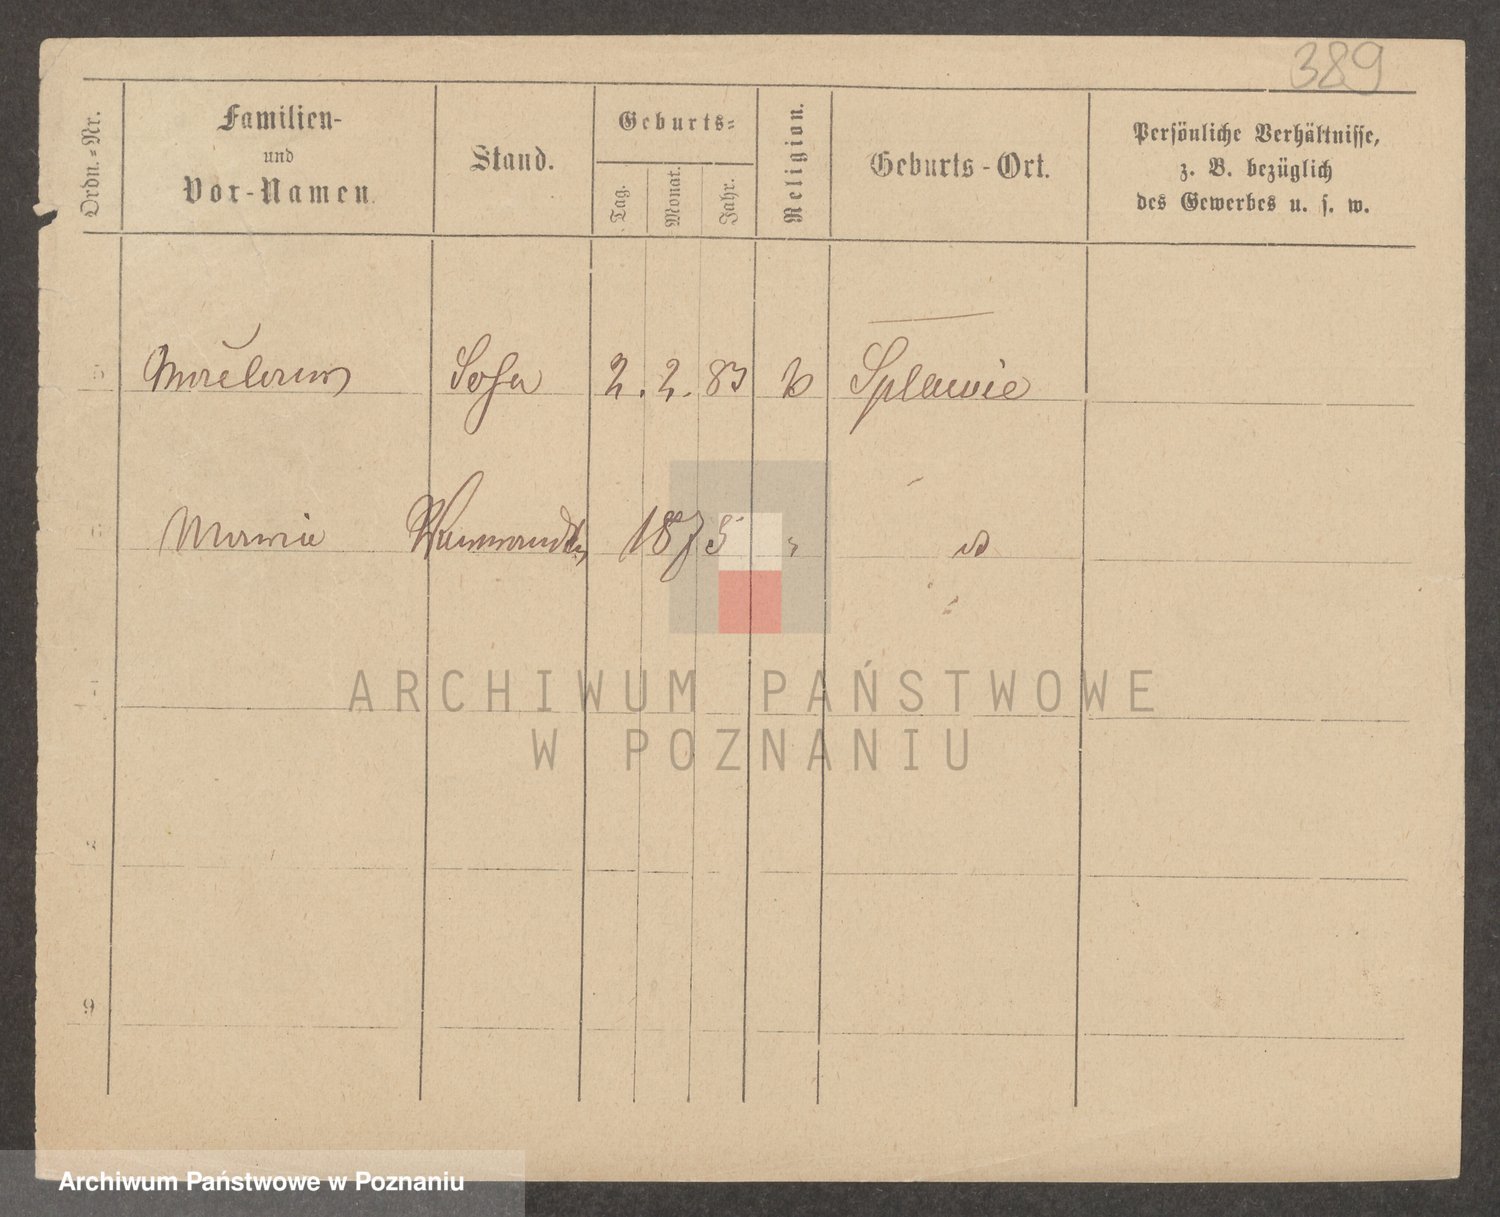 389
Ordn.-Nr.
Familien-
und
Vor-Namen.
Stand.
Geburts-
Tag.
Monat.
Jahr.
Religion.
Geburts-Ort.
Persönliche Verhältnisse,
z. B. bezüglich
des Gewerbes u. s. w.
2. 2. 83 Splawie
1875
9
ARCHIWUM PAŃSTWOWE
W POZNANIU
Archiwum Państwowe w Poznaniu